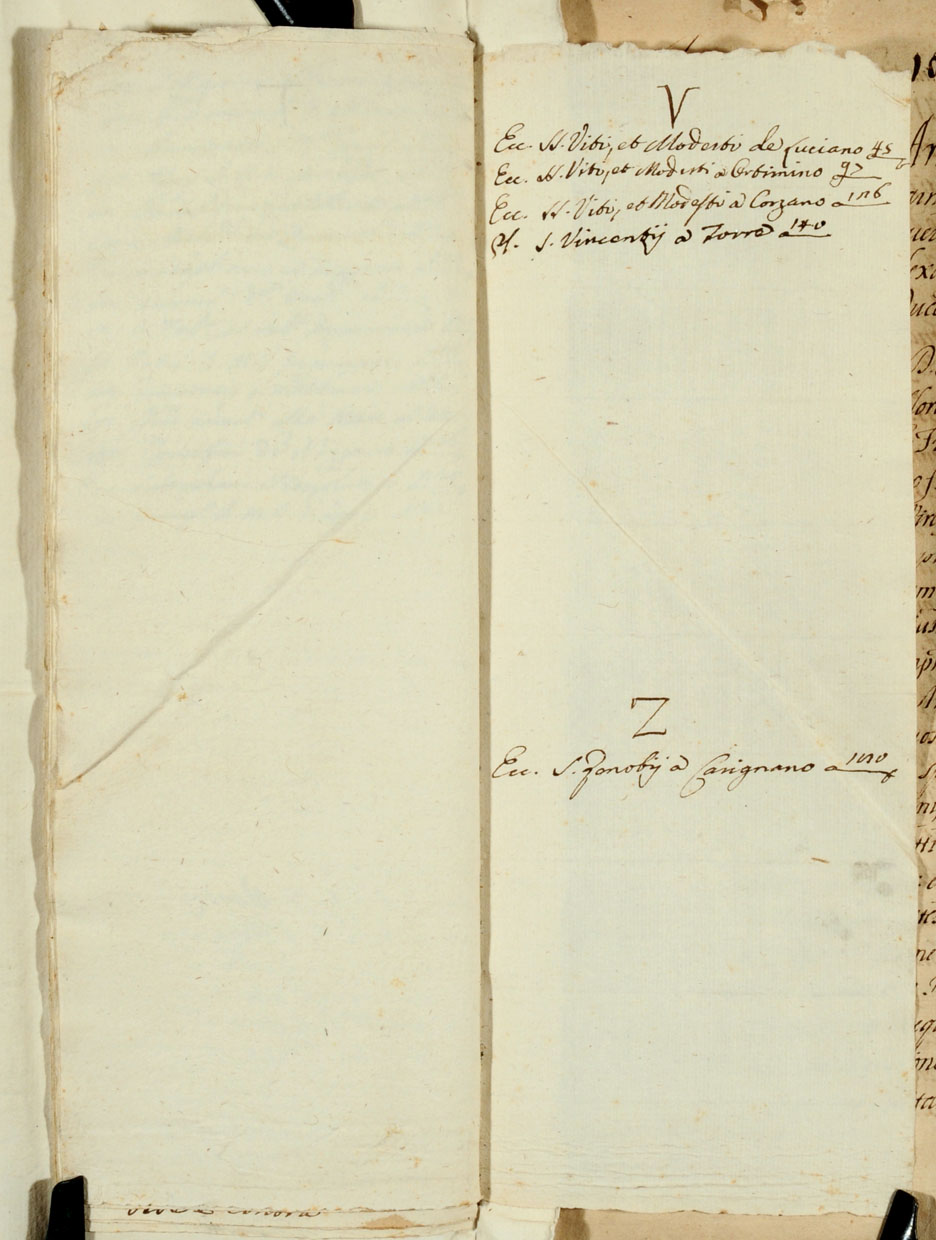 V
Ecc. SS. Viti, et Modesti de Luciano 45
Ecc. SS. Viti, et Modesti a Ortimino 97
Ecc. SS. Viti, et Modesti a Corzano a 106
S. Vincentij a Torre a 140
Z
Ecc. S. Zenobij a Casignano a